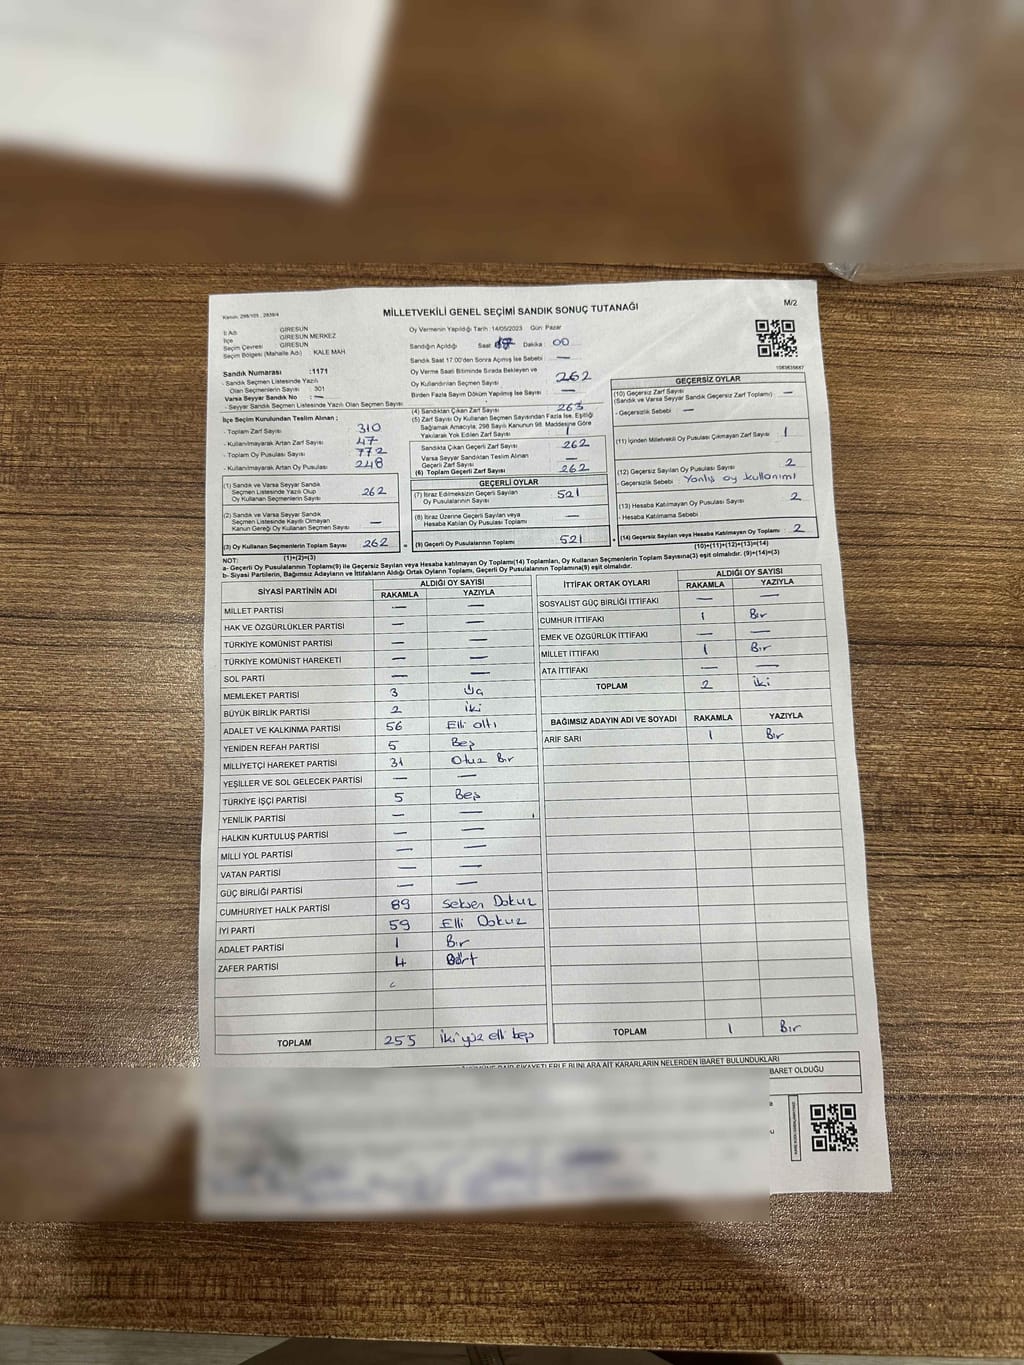 Kanun: 298/105 , 2839/4
MİLLETVEKİLİ GENEL SEÇİMİ SANDIK SONUÇ TUTANAĞI
M/2
İl Adı : GİRESUN
İlçe : GİRESUN MERKEZ
Seçim Çevresi : GİRESUN
Seçim Bölgesi (Mahalle Adı) : KALE MAH
Sandık Numarası :1171
- Sandık Seçmen Listesinde Yazılı
Olan Seçmenlerin Sayısı : 301
Varsa Seyyar Sandık No : —
- Seyyar Sandık Listesinde Yazılı Olan Seçmen Sayısı
İlçe Seçim Kurulundan Teslim Alınan ;
- Toplam Zarf Sayısı 310
- Kullanılmayarak Artan Zarf Sayısı 47
- Toplam Oy Pusulası Sayısı 772
- Kullanılmayarak Artan Oy Pusulası 248
(1) Sandık ve Varsa Seyyar Sandık
Seçmen Listesinde Yazılı Olup
Oy Kullanan Seçmenlerin Sayısı 262
(2) Sandık ve Varsa Seyyar Sandık
Seçmen Listesinde Kayıtlı Olmayan
Kanun Gereği Oy Kullanan Seçmen Sayısı —
(3) Oy Kullanan Seçmenlerin Toplam Sayısı 262
(1)+(2)=(3)
Oy Vermenin Yapıldığı Tarih :14/05/2023 Gün: Pazar
Sandığın Açıldığı Saat 17 Dakika : 00
Sandık Saat 17.00'den Sonra Açmış İse Sebebi —
Oy Verme Saati Bitiminde Sırada Bekleyen ve
Oy Kullandırılan Seçmen Sayısı 262
Birden Fazla Sayım Döküm Yapılmış İse Sayısı —
(4) Sandıktan Çıkan Zarf Sayısı 263
(5) Zarf Sayısı Oy Kullanan Seçmen Sayısından Fazla İse, Eşitliği
Sağlamak Amacıyla, 298 Sayılı Kanunun 98. Maddesine Göre
Yakılarak Yok Edilen Zarf Sayısı 1
Sandıkta Çıkan Geçerli Zarf Sayısı 262
Varsa Seyyar Sandıktan Teslim Alınan
Geçerli Zarf Sayısı —
(6) Toplam Geçerli Zarf Sayısı 262
GEÇERLİ OYLAR
(7) İtiraz Edilmeksizin Geçerli Sayılan
Oy Pusulalarının Sayısı 521
(8) İtiraz Üzerine Geçerli Sayılan veya
Hesaba Katılan Oy Pusulası Toplamı —
(9) Geçerli Oy Pusulalarının Toplamı 521
1083635687
GEÇERSİZ OYLAR
(10) Geçersiz Zarf Sayısı
(Sandık ve Varsa Seyyar Sandık Geçersiz Zarf Toplamı) —
- Geçersizlik Sebebi : —
(11) İçinden Milletvekili Oy Pusulası Çıkmayan Zarf Sayısı 1
(12) Geçersiz Sayılan Oy Pusulası Sayısı 2
- Geçersizlik Sebebi : Yanlış oy kullanımı
(13) Hesaba Katılmayan Oy Pusulası Sayısı 2
- Hesaba Katılmama Sebebi
(14) Geçersiz Sayılan veya Hesaba Katılmayan Oy Toplamı 2
(10)+(11)+(12)+(13)=(14)
NOT:
a- Geçerli Oy Pusulalarının Toplamı(9) ile Geçersiz Sayılan veya Hesaba Katılmayan Oy Toplamı(14) Toplamları, Oy Kullanan Seçmenlerin Toplam Sayısına(3) eşit olmalıdır. (9)+(14)=(3)
b- Siyasi Partilerin, Bağımsız Adayların ve İttifakların Aldığı Ortak Oyların Toplamı, Geçerli Oy Pusulalarının Toplamına(9) eşit olmalıdır.
SİYASİ PARTİNİN ADI ALDIĞI OY SAYISI
RAKAMLA YAZIYLA
MİLLET PARTİSİ — —
HAK VE ÖZGÜRLÜKLER PARTİSİ — —
TÜRKİYE KOMÜNİST PARTİSİ — —
TÜRKİYE KOMÜNİST HAREKETİ — —
SOL PARTİ — —
MEMLEKET PARTİSİ 3 Üç
BÜYÜK BİRLİK PARTİSİ 2 İki
ADALET VE KALKINMA PARTİSİ 56 Elli altı
YENİDEN REFAH PARTİSİ 5 Beş
MİLLİYETÇİ HAREKET PARTİSİ 31 Otuz Bir
YEŞİLLER VE SOL GELECEK PARTİSİ — —
TÜRKİYE İŞÇİ PARTİSİ 5 Beş
YENİLİK PARTİSİ — —
HALKIN KURTULUŞ PARTİSİ — —
MİLLİ YOL PARTİSİ — —
VATAN PARTİSİ — —
GÜÇ BİRLİĞİ PARTİSİ — —
CUMHURİYET HALK PARTİSİ 89 Seksen Dokuz
İYİ PARTİ 59 Elli Dokuz
ADALET PARTİSİ 1 Bir
ZAFER PARTİSİ 4 Dört
TOPLAM 255 iki yüz elli beş
İTTİFAK ORTAK OYLARI ALDIĞI OY SAYISI
RAKAMLA YAZIYLA
SOSYALİST GÜÇ BİRLİĞİ İTTİFAKI — —
CUMHUR İTTİFAKI 1 Bir
EMEK VE ÖZGÜRLÜK İTTİFAKI — —
MİLLET İTTİFAKI 1 Bir
ATA İTTİFAKI — —
TOPLAM 2 iki
BAĞIMSIZ ADAYIN ADI VE SOYADI RAKAMLA YAZIYLA
ARİF SARI 1 Bir
TOPLAM 1 Bir
ŞİKAYETLERLE BUNLARA AİT KARARLARIN NELERDEN İBARET BULUNDUKLARI
BARET OLDUĞU